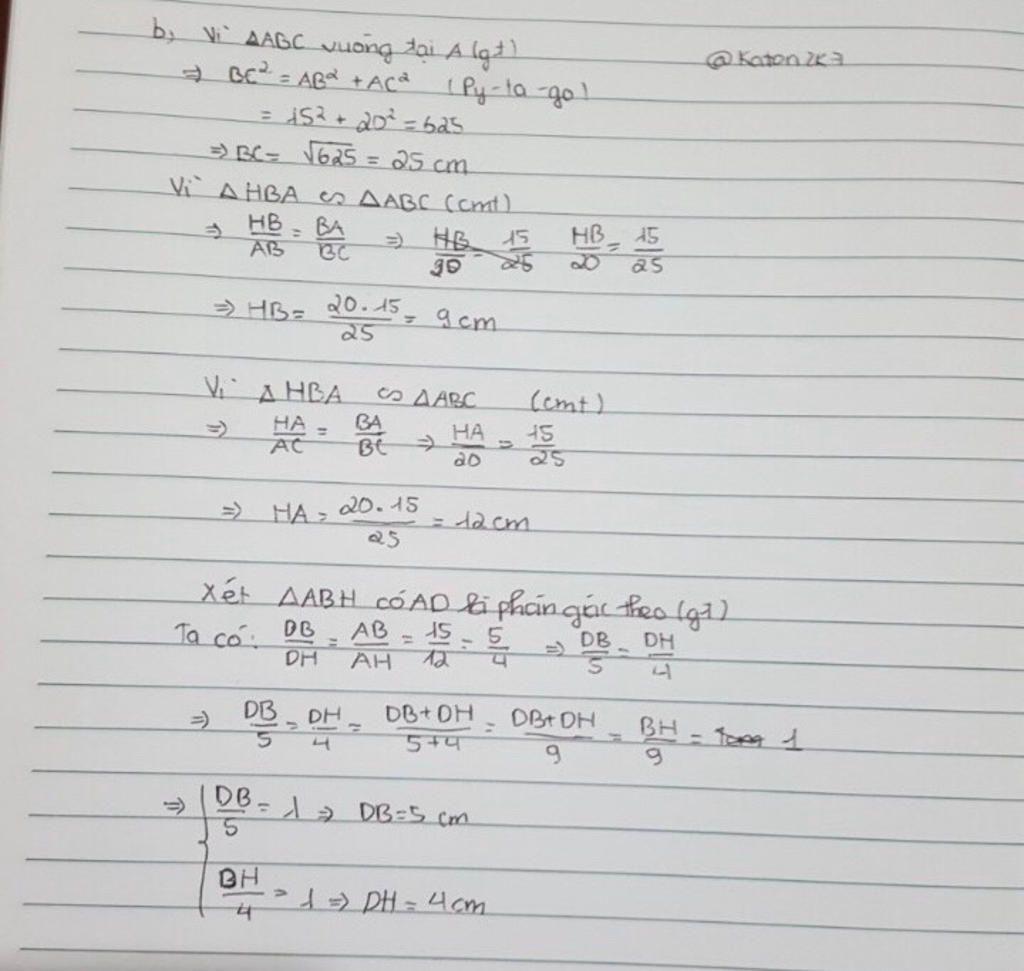 b, Vì ΔABC vuông tại A (gt)
@Katon2K7
⇒ BC² = AB² + AC² (Py-ta-go)
= 15² + 20² = 625
⇒ BC = √625 = 25 cm
Vì ΔHBA ∽ ΔABC (cmt)
⇒ HB/AB = BA/BC ⇒ HB/20 = 15/25
⇒ HB = 20.15/25 = 9 cm
Vì ΔHBA ∽ ΔABC (cmt)
⇒ HA/AC = BA/BC ⇒ HA/20 = 15/25
⇒ HA = 20.15/25 = 12 cm
Xét ΔABH có AD phân giác theo (gt)
Ta có: DB/DH = AB/AH = 15/12 = 5/4 ⇒ DB/5 = DH/4
⇒ DB/5 = DH/4 = DB+DH/5+4 = DB+DH/9 = BH/9 = 1
⇒ { DB/5 = 1 ⇒ DB = 5 cm
BH/4 = 1 ⇒ DH = 4 cm